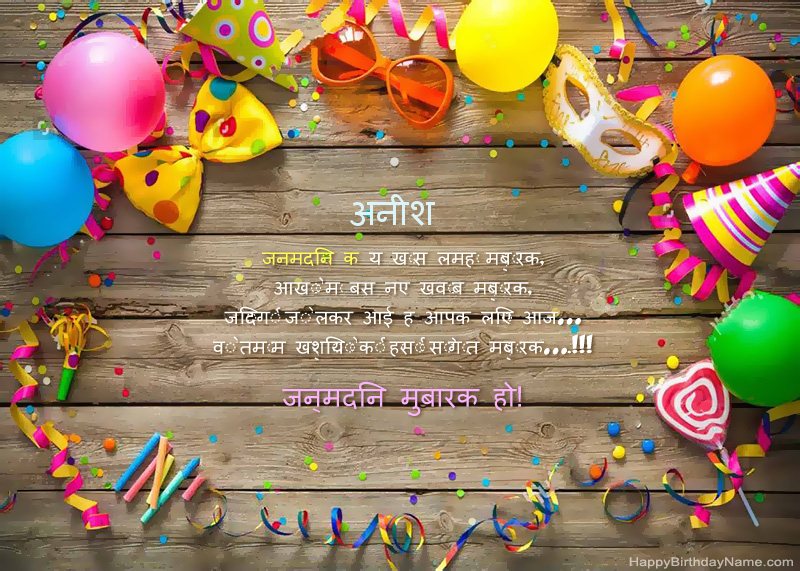 अनीश
जनमदनि क य खस लमह मबरक,
आखम बस नए खवब मबरक,
जदिगजलकर आई ह आपक लएि आज...
वतमम खशयिकहसरसगत मबरक....!!!
जन्मदनि मुबारक हो!
HappyBirthdayName.com